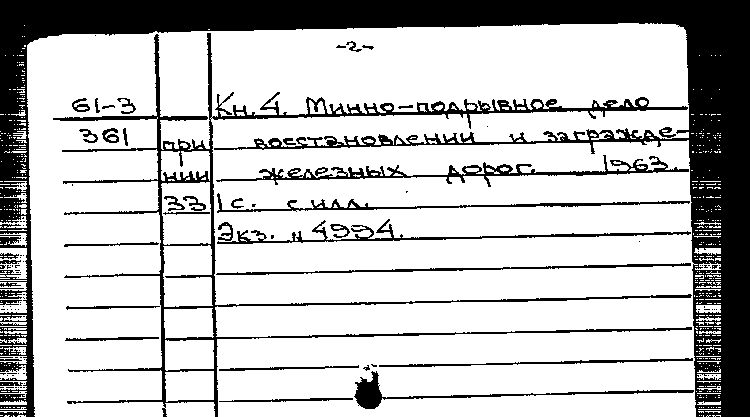 -2-
61-3 Кн. 4. Минно-подрывное дело
361 при восстановлении и загражде-
нии железных дорог. 1963.
331 с. с илл.
Экз. н 4994.